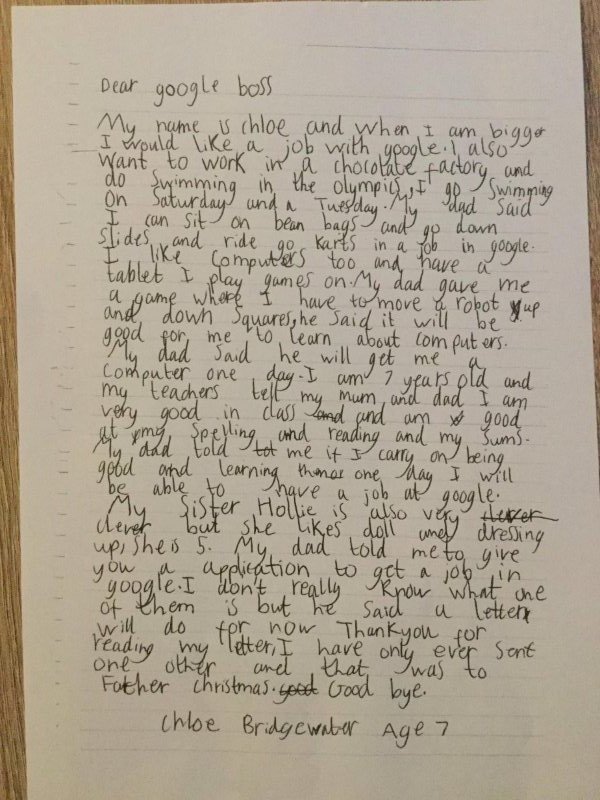 Dear google boss
My name is chloe and when I am bigger
I would like a job with google. I also
want to work in a chocolate factory and
do swimming in the olympics, I go Swimming
on Saturday and a Tuesday. My dad said
I can sit on bean bags and go down
slides and ride go karts in a job in google.
I like computers too and have a
tablet I play games on. My dad gave me
a game where I have to move a robot up
and down squares, he said it will be
good for me to learn about computers.
My dad said he will get me a
computer one day. I am 7 years old and
my teachers tell my mum and dad I am
very good in class and and am good
at my spelling and reading and my sums.
My dad told me if I carry on being
good and learning one day I will
be able to have a job at google.
My sister Hollie is also very clever
clever but she likes doll and dressing
up, she is 5. My dad told me to give
you a application to get a job in
google. I don't really know what one
of them is but he said a letter
will do for now Thankyou for
reading my letter, I have only ever sent
one other and that was to
Father christmas. good Good bye.
Chloe Bridgewater Age 7